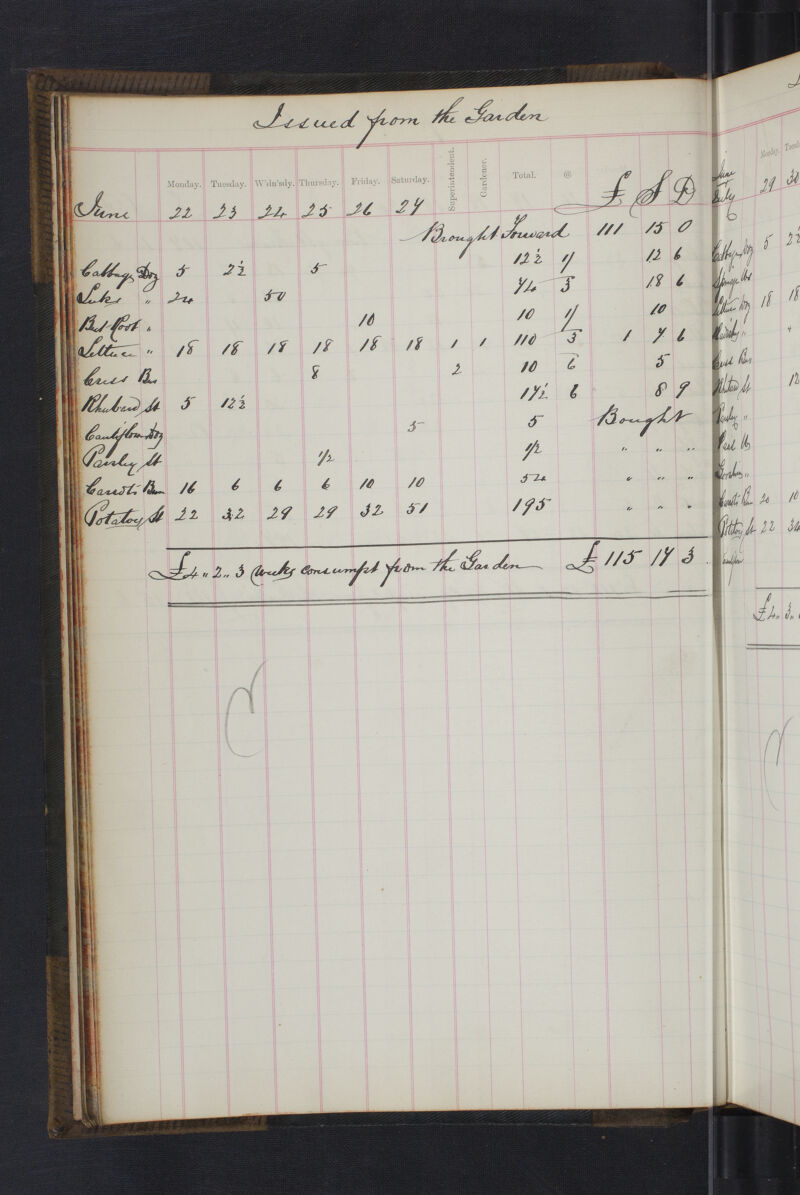 Issued from the Garden
Monday. Tuesday. W'dn'sdy. Thursday. Friday. Saturday. Superintendent. Gardener. Total. @ £ S D
June 22 23 24 25 26 27
Brought Forward 111 15 0
Cabbage Doz 5 2½ 5 12½ 1/ 12 6
Leeks " 24 50 74 3 18 6
Beet Root " 10 10 1/ 10
Lettuce " 18 18 18 18 18 18 1 1 110 3 1 7 6
Cress Bun 8 2 10 6 5
Rhubard St 5 12½ 17½ 6 8 9
Cauliflower Doz 5 5 Bought
Parsley St ½ ½ " " "
Carrots Bun 16 6 6 6 10 10 54 " " "
Potatoes St 22 32 29 29 32 51 195 " " "
£4 " 2 " 3 Weeks consumpt from the Garden £ 115 17 3
Monday.
June 29 30
July
Cabbage Doz 5 2½
Lettuce Doz 18 18
Cress Bun
Rhubard St 12
Parsley "
Carrots Bun 20 10
Potatoes St 22 34
£4 " 3 "